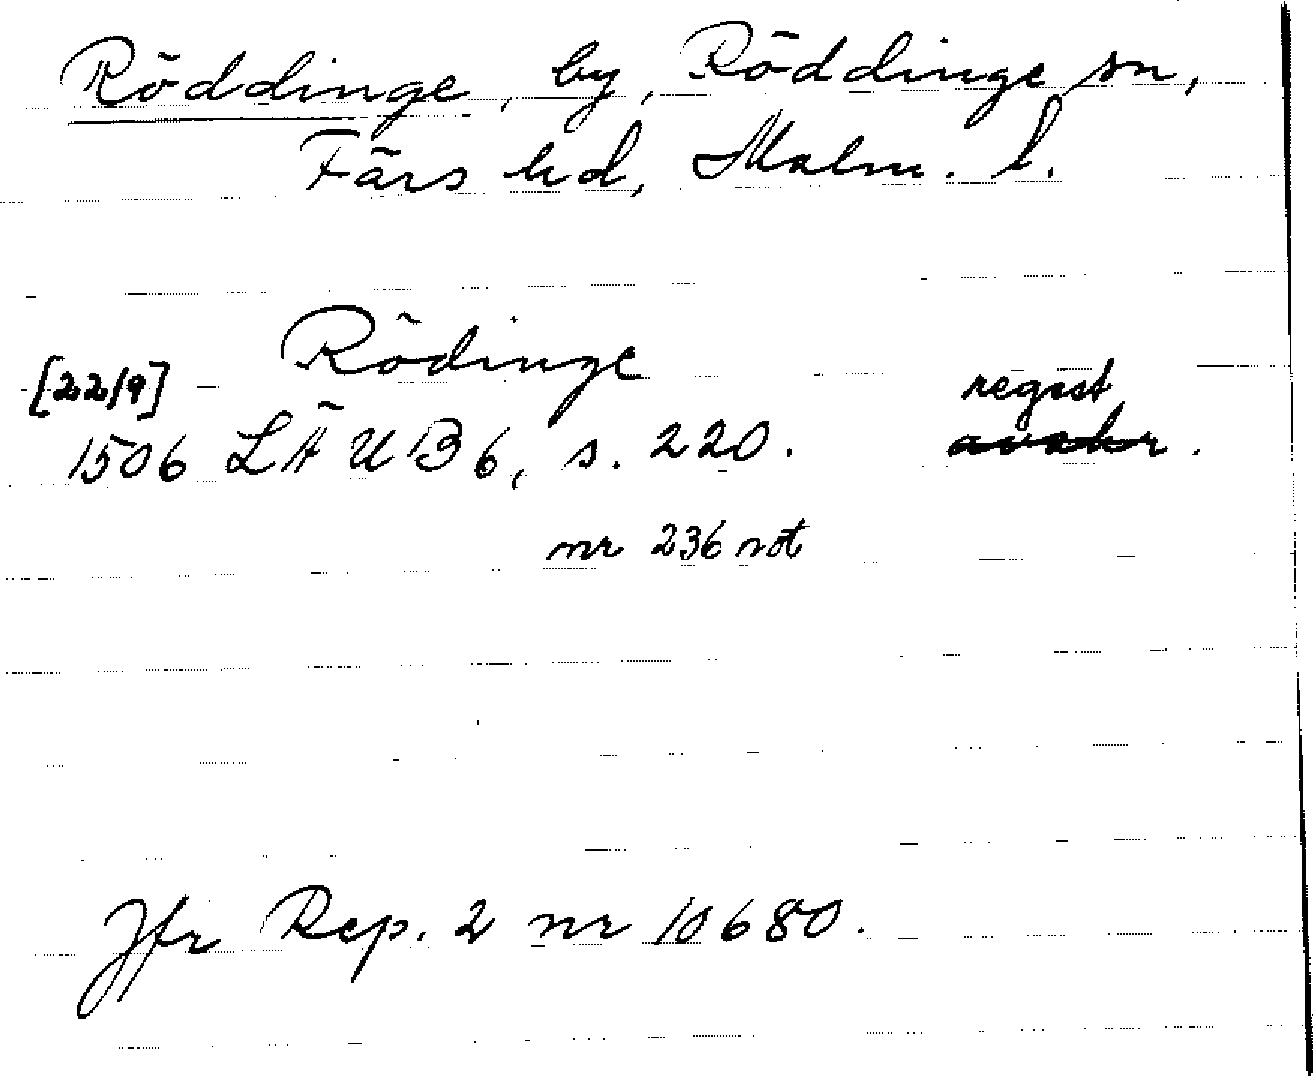 Röddinge, by, Röddinge sn,
Färs hd, Malm. l.
Rödinge
[22/9] regist
1506 LÄUB 6, s. 220. avskr.
nr 236 not
Jfr Rep. 2 nr 10680.